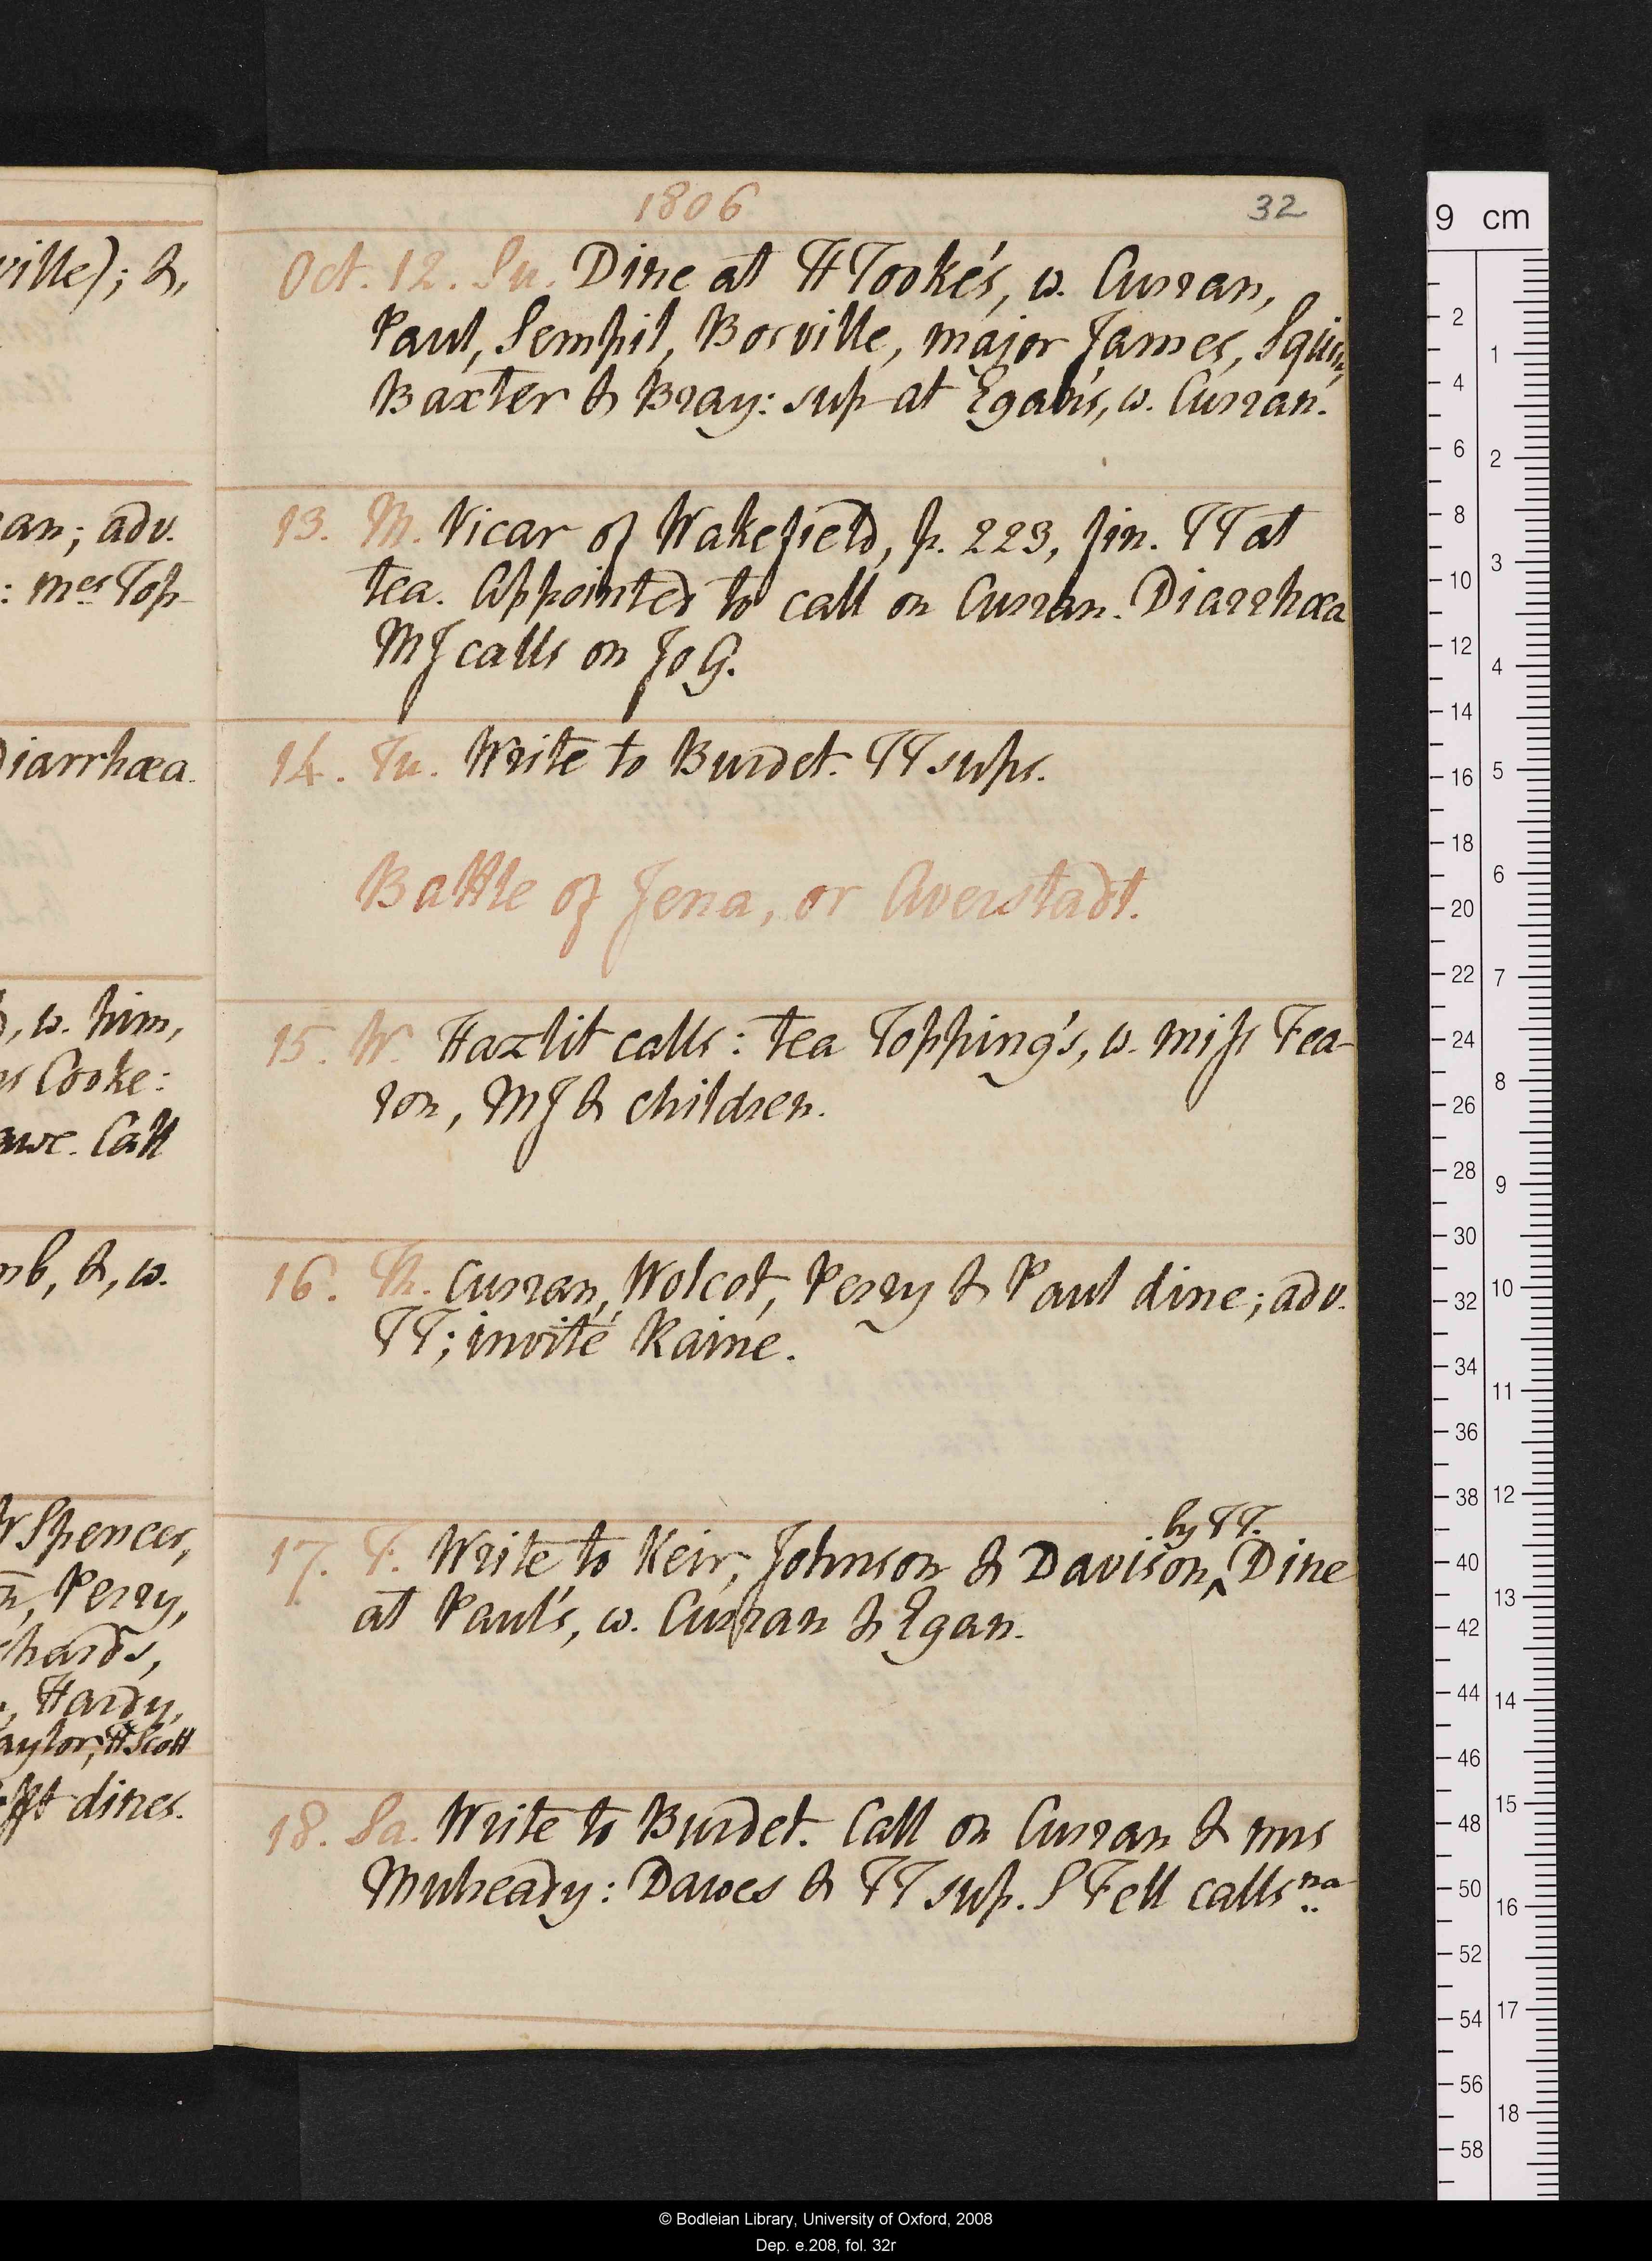 1806
32
Oct. 12. Su. Dine at HTooke's, w. Curran,
Paul, Sempil, Bosville, major James, Squire,
Baxter & Bray: sup at Egan's, w. Curran.
13. M. Vicar of Wakefield, p. 223, fin. TT at
tea. Appointed to call on Curran. Diarrhœa
MJ calls on Jo G.
14. Tu. Write to Burdet. TT sups.
Battle of Jena, or Averstadt.
15. W. Hazlit calls: tea Topping's, w. miss Fea-
ron, MJ & children.
16. Th. Curran, Wolcot, Perry & Paul dine; adv.
TT; invité Raine.
by TT.
17. F. Write to Keir, Johnson & Davison,^ Dine
at Paul's, w. Curran & Egan.
18. Sa. Write to Burdet. Call on Curran & mrs
Mulready: Dawes & TT sup. S Fell calls na
ville); &,
an; adv.
: mrs Top-
Diarrhœa.
, w. him,
Cooke:
Call
mb, &, w.
Spencer,
, Perry,
chards,
, Hardy,
aylor, HScott
dines.
9 cm
2
4
6
8
10
12
14
16
18
20
22
24
26
28
30
32
34
36
38
40
42
44
46
48
50
52
54
56
58
1
2
3
4
5
6
7
8
9
10
11
12
13
14
15
16
17
18
© Bodleian Library, University of Oxford, 2008
Dep. e.208, fol. 32r